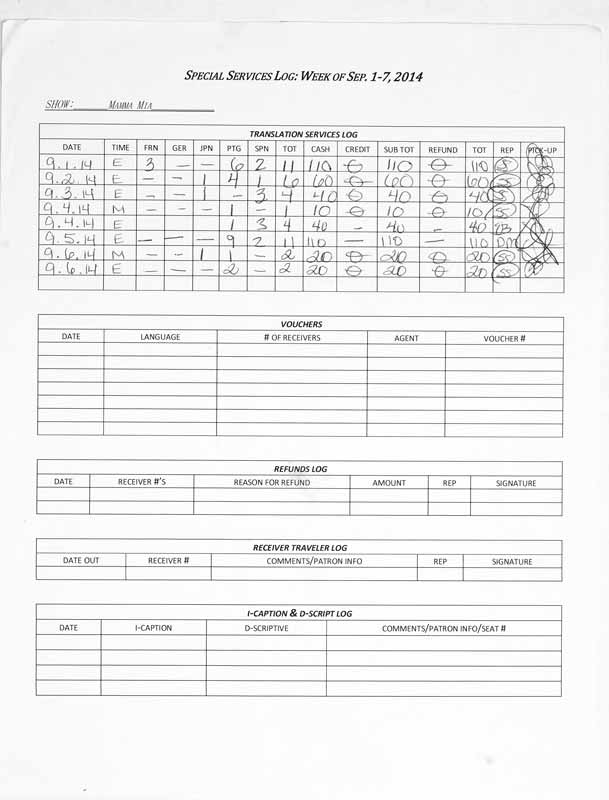 SPECIAL SERVICES LOG: WEEK OF SEP. 1-7, 2014
SHOW: MAMMA MIA
TRANSLATION SERVICES LOG
DATE TIME FRN GER JPN PTG SPN TOT CASH CREDIT SUB TOT REFUND TOT REP PICK-UP
9.1.14 E 3 — — 6 2 11 110 ⊖ 110 ⊖ 110 SS
9.2.14 E — — 1 4 1 6 60 ⊖ 60 ⊖ 60 SS
9.3.14 E — — 1 - 3 4 40 ⊖ 40 ⊖ 40 SS
9.4.14 M — — — 1 — 1 10 ⊖ 10 ⊖ 10 SS
9.4.14 E 1 3 4 40 - 40 - 40
9.5.14 E — — — 9 2 11 110 — 110 — 110 DM
9.6.14 M — - 1 1 - 2 20 ⊖ 20 ⊖ 20 SS
9.6.14 E — — — 2 - 2 20 ⊖ 20 ⊖ 20 SS
VOUCHERS
DATE LANGUAGE # OF RECEIVERS AGENT VOUCHER #
REFUNDS LOG
DATE RECEIVER #'S REASON FOR REFUND AMOUNT REP SIGNATURE
RECEIVER TRAVELER LOG
DATE OUT RECEIVER # COMMENTS/PATRON INFO REP SIGNATURE
I-CAPTION & D-SCRIPT LOG
DATE I-CAPTION D-SCRIPTIVE COMMENTS/PATRON INFO/SEAT #